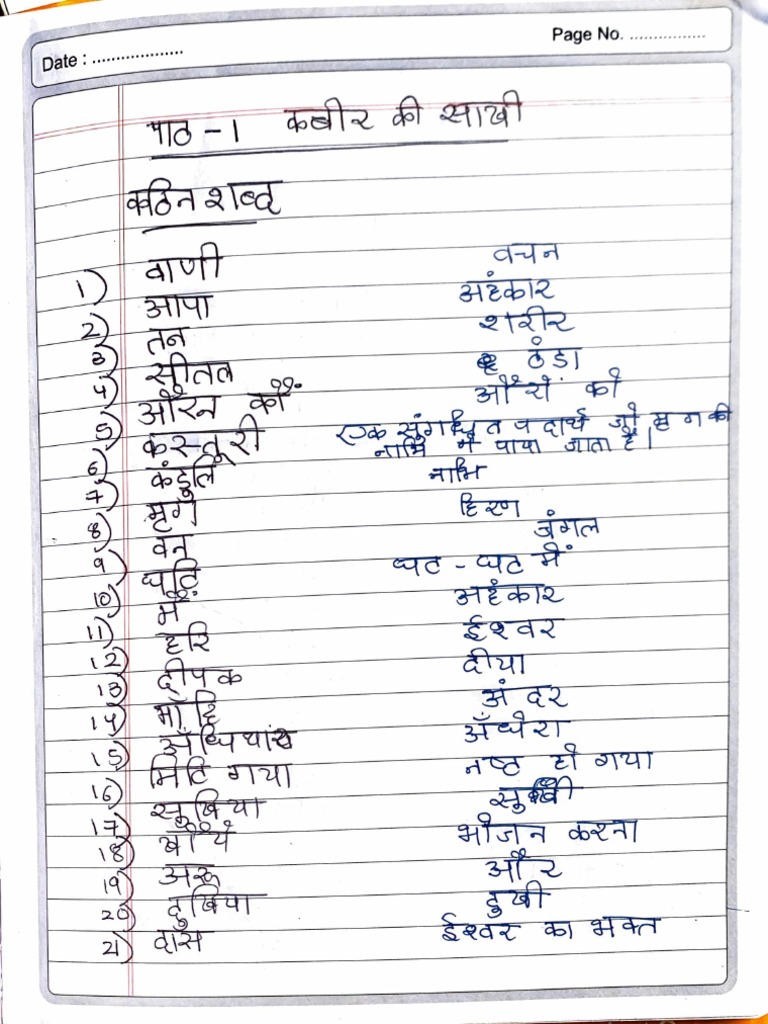 Date : ..................
Page No. ................
पाठ - 1 कबीर की साखी
कठिन शब्द
1) वाणी वचन
2) आपा अहंकार
3) तन शरीर
4) सीतल ठंडा
5) औरन कौं औरों को
6) कस्तूरी एक सुंगधित पदार्थ जो मृग की
नाभि में पाया जाता है।
7) कंडुलि नाभि
8) मृग हिरण
9) वन जंगल
10) घटि घट - घट में
11) मैं अहंकार
12) हरि ईश्वर
13) दीपक दीया
14) माँहि अंदर
15) अँधियारा अँधेरा
16) मिटि गया नष्ट हो गया
17) सुखिया सुखी
18) खायै भोजन करना
19) अरू और
20) दुखिया दुखी
21) दास ईश्वर का भक्त